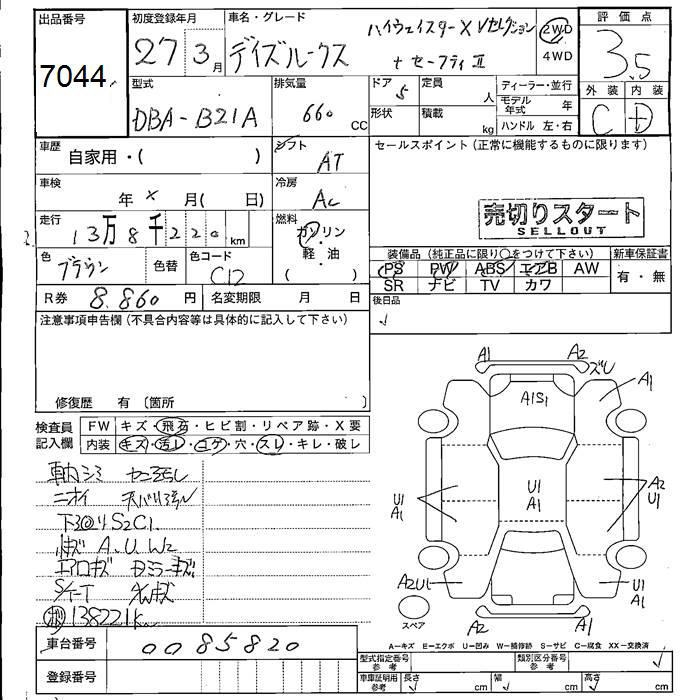 出品番号
7044
初度登録年月
27 3月
車名・グレード
デイズルークス
ハイウェイスターX Vセレクション
+ セーフティ II
2WD
4WD
評価点
3.5
外装 内装
C D
型式
DBA-B21A
排気量
660 CC
ドア 5
定員 人
形状
積載 kg
ディーラー・並行
モデル年式 年
ハンドル 左・右
車歴
自家用・( )
シフト
AT
セールスポイント(正常に機能するものに限ります)
車検
年 × 月( 日)
冷房
AC
売切りスタート
SELLOUT
走行
13万8千220 km
燃料
ガソリン
・
軽・油
( )
色
ブラウン
色替
色コード
C12
装備品(純正品に限り○をつけて下さい)
新車保証書
PS PW ABS エアB AW
SR ナビ TV カワ
有・無
R券 8.860円
名変期限 月 日
後日品
注意事項申告欄(不具合内容等は具体的に記入して下さい)
修復歴 有〔箇所 〕
検査員記入欄
FW キズ・飛石・ヒビ割・リペア跡・X要
内装 キズ・汚レ・コゲ・穴・スレ・キレ・破レ
車内シミ
ニオイ
下回り S2C1.
A.U.W2
エアロキズ
138221km
A1 A2
ズレ
A1
A1S1
U1
A1
U1
A1
A2
U1
A2U1
U1
A1
A2 A1
スペア
A=キズ E=エクボ U=凹み W=補修跡 S=サビ C=腐食 XX=交換済
車台番号
0085820
登録番号
型式指定番号 参考
類別区分番号 参考
車庫証明用 参考
長さ cm
幅 cm
高さ cm